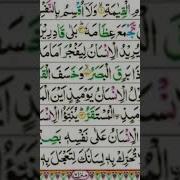 الْقِيٰمَةِ ۙ وَلَاۤ اُقْسِمُ
نَّجْمَعَ عِظَامَهٗ ؕ بَلٰى قٰدِرِيْنَ
يُرِيْدُ الْاِنْسَانُ لِيَفْجُرَ اَمَامَهٗ
فَاِذَا بَرِقَ الْبَصَرُ ۙ وَخَسَفَ الْقَمَرُ
الْاِنْسَانُ يَوْمَئِذٍ اَيْنَ
الْمُسْتَقَرُّ ؕ يُنَبَّؤُا الْاِنْسَانُ
الْاِنْسَانُ عَلٰى نَفْسِهٖ
تُحَرِّكْ بِهٖ لِسَانَكَ لِتَعْجَلَ بِهٖ